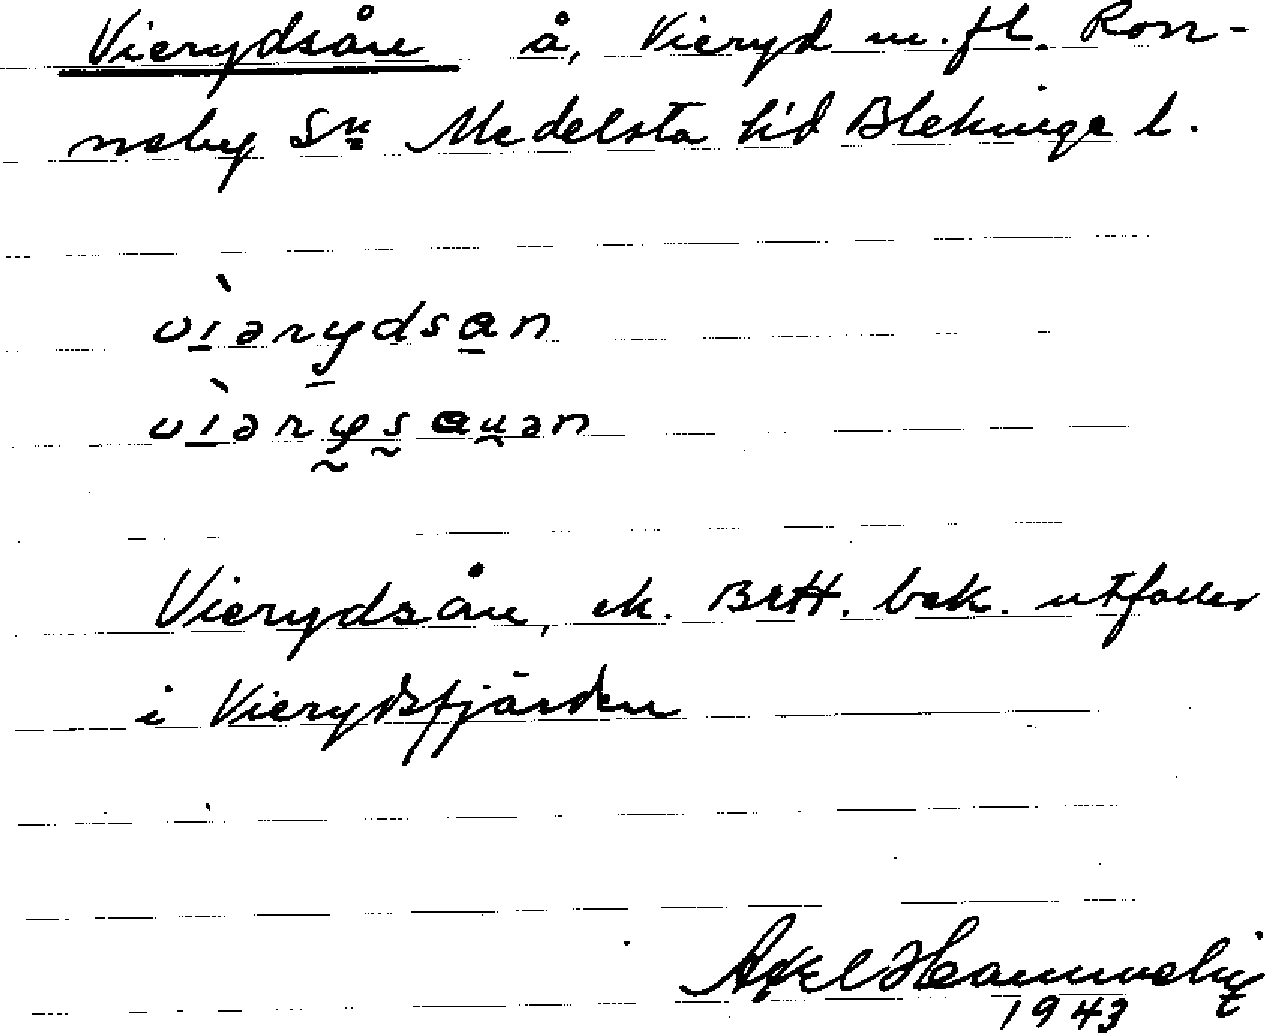 Vierydsån å, Vieryd m. fl. Ron-
neby Sn Medelsta hd Blekinge l.
vìərydsan
vìərys auən
Vierydsån, ek. Bett. bek. utfaller
i Vierydsfjärden
Axel
1943